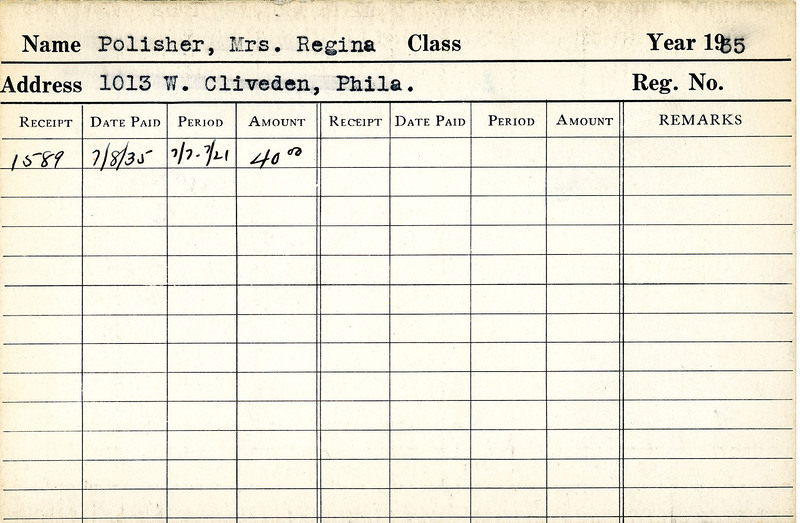 Name Polisher, Mrs. Regina Class Year 1935
Address 1013 W. Cliveden, Phila. Reg. No.
RECEIPT DATE PAID PERIOD AMOUNT RECEIPT DATE PAID PERIOD AMOUNT REMARKS
1589 7/8/35 7/7-7/21 40 00